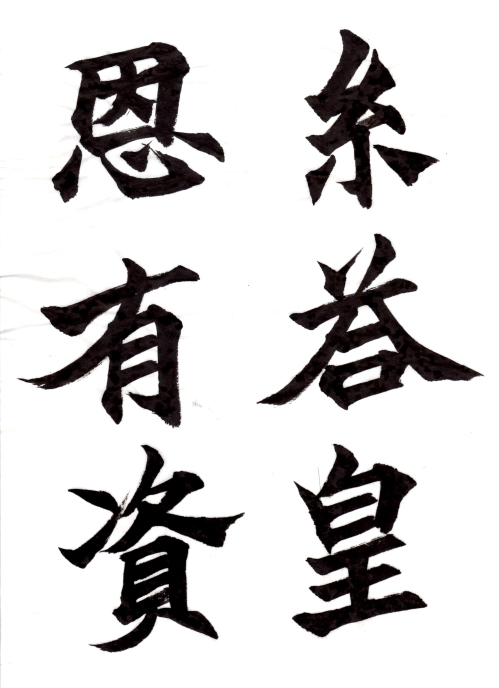 糸荅皇
恩有資